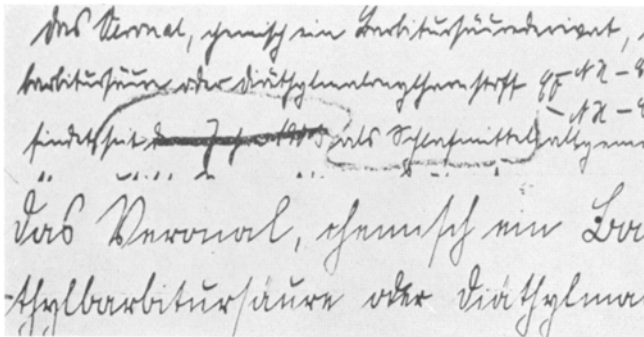 das Veronal, chemisch ein Barbitursäurederivat,
barbitursäure oder diäthylmalonylharnstoff
findet seit als Schlafmittel allgeme
das Veronal, chemisch ein Ba
-thylbarbitursäure oder diäthylma